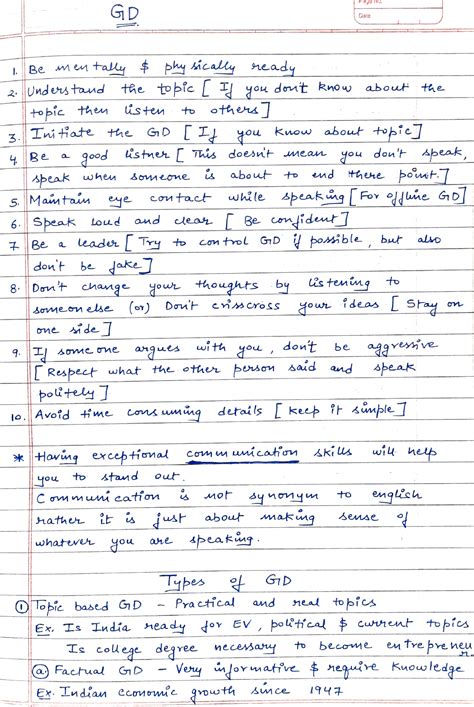 Page No.
Date
GD
1. Be mentally & physically ready
2. Understand the topic [ If you don't know about the
topic then listen to others ]
3. Initiate the GD [ If you know about topic ]
4 Be a good listner [ This doesn't mean you don't speak,
speak when someone is about to end there point. ]
5. Maintain eye contact while speaking [ For offline GD ]
6. Speak loud and clear [ Be confident ]
7. Be a leader [ Try to control GD if possible, but also
don't be fake ]
8. Don't change your thoughts by listening to
someone else (or) Don't crisscross your ideas [ Stay on
one side ]
9. If some one argues with you, don't be aggressive
[ Respect what the other person said and speak
politely ]
10. Avoid time consuming details [ keep it simple ]
* Having exceptional communication skills will help
you to stand out.
Communication is not synonym to english
rather it is just about making sense of
whatever you are speaking.
Types of GD
① Topic based GD - Practical and real topics
Ex. Is India ready for EV, political & current topics
Is college degree necessary to become entrepreneur.
ⓐ Factual GD - Very informative & require knowledge
Ex. Indian economic growth since 1947